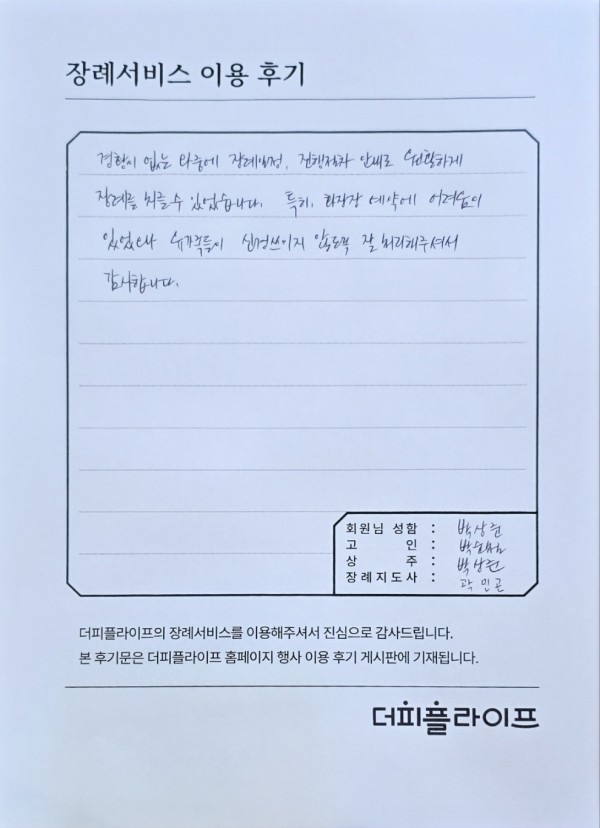 장례서비스 이용 후기
경황이 없는 와중에 장례일정, 진행절차 안내로 원활하게
장례를 치를 수 있었습니다. 특히, 화장장 예약에 어려움이
있었으나 유가족들이 신경쓰이지 않도록 잘 처리해주셔서
감사합니다.
회원님 성함 : 박상헌
고 인 :
상 주 : 박상헌
장례지도사 : 곽민곤
더피플라이프의 장례서비스를 이용해주셔서 진심으로 감사드립니다.
본 후기문은 더피플라이프 홈페이지 행사 이용 후기 게시판에 기재됩니다.
더피플라이프